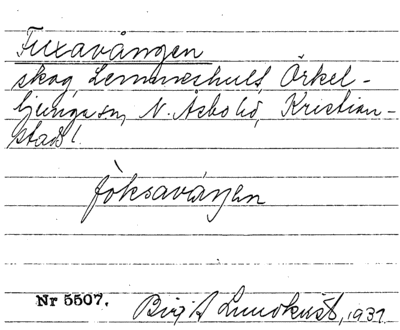 Fuxavången
skog, Lemmeshult, Örkel-
ljunga sn, N. Åsbo hd, Kristian-
stads l.
fòksaváŋen
Nr 5507.
Birgit Lundkvist, 1931.